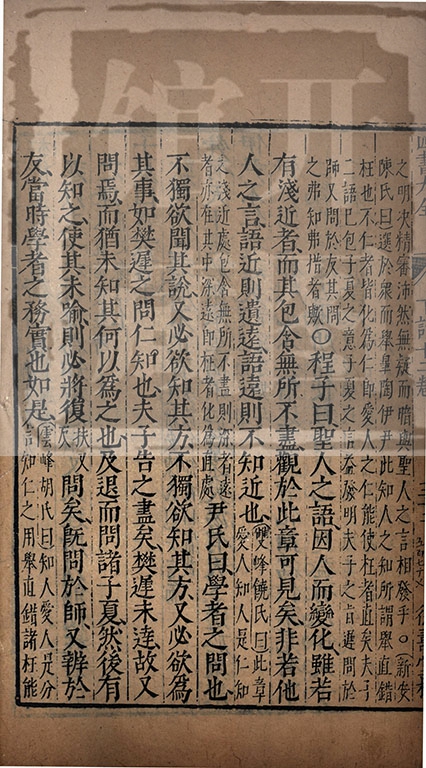 之明決精審沛然無疑而暗與聖人之言相發乎○新安
陳氏曰選於衆而舉皐陶伊尹此知人之知所謂舉直錯
枉也不仁者皆化為仁即愛人之仁能使枉者直矣夫子
二語已包子夏之意子夏之言益發明夫子之旨遲問於
師又問於友其問
之弗知弗措者歟○程子曰聖人之語因人而變化雖若
有淺近者而其包含無所不盡觀於此章可見矣非若他
人之言語近則遺遠語遠則不知近也雙峰饒氏曰此章
愛人知人是仁知
之淺近處包含無所不盡則深者遠
者亦在其中深遠即枉者化為直處尹氏曰學者之問也
不獨欲聞其說又必欲知其方不獨欲知其方又必欲為
其事如樊遲之問仁知也夫子告之盡矣樊遲未達故又
問焉而猶未知其何以為之也及退而問諸子夏然後有
以知之使其未喻則必將復扶又反問矣旣問於師又辨於
友當時學者之務實也如是雲峰胡氏曰知人愛人是分
言知仁之用舉直錯諸枉能